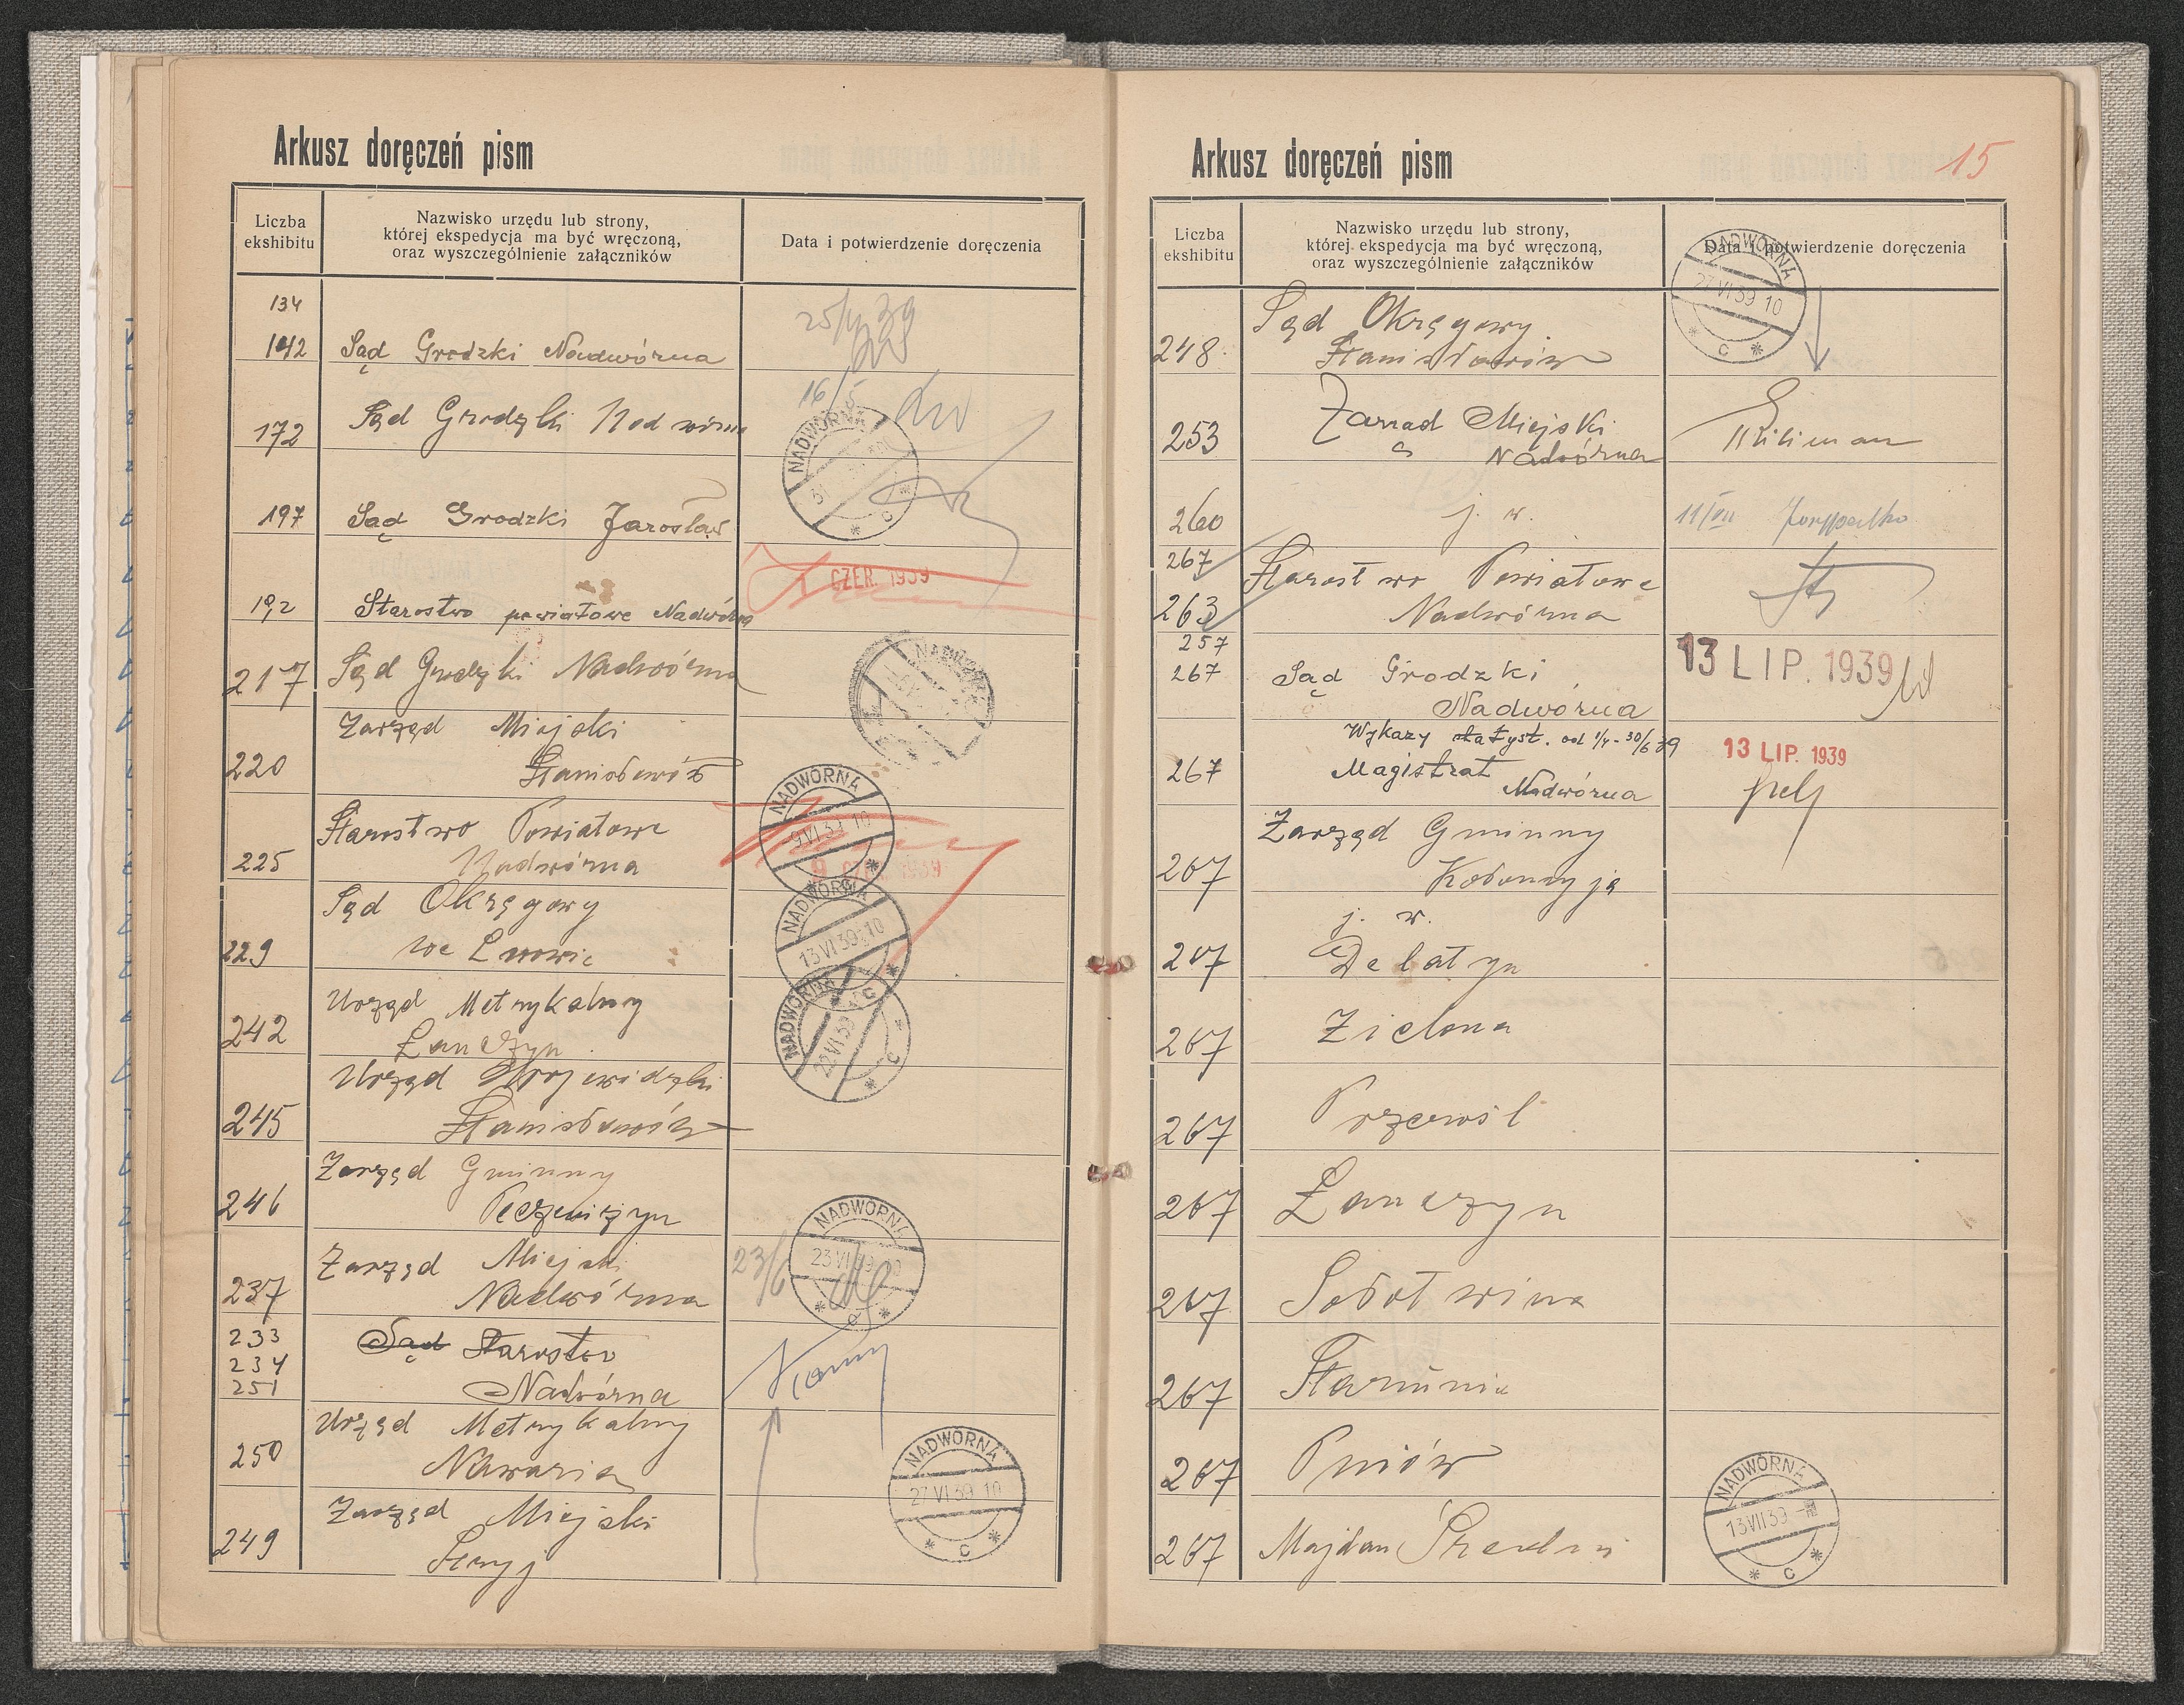 Arkusz doręczeń pism
Liczba
ekshibitu
Nazwisko urzędu lub strony,
której ekspedycja ma być wręczoną,
oraz wyszczególnienie załączników
Data i potwierdzenie doręczenia
134
142 Sąd Grodzki Nadwórna
172 Sąd Grodzki Nadwórna 16/5
NADWÓRNA
197 Sąd Grodzki Jarosław
CZER. 1939
192 Starostwo powiatowe Nadwórna
217 Sąd Grodzki Nadwórna
Zarząd Miejski
220 Stanisławów
NADWÓRNA 9 VI 39 10
Starostwo Powiatowe
225 Nadwórna
9 CZER. 1939
Sąd Okręgowy
229 we Lwowie
NADWÓRNA 13 VI 39 10 C
Urząd Metrykalny
242 Łanczyn
NADWÓRNA 22 VI 39 C
Urząd Wojewódzki
245 Stanisławów
Zarząd Gminny
246 Peczeniżyn
Zarząd Miejski
237 Nadwórna
23/6 NADWÓRNA 23 VI 39 10 C
233 Sąd Starostwo
234
251 Nadwórna
Urząd Metrykalny
250 Nawaria
Zarząd Miejski
249 Stryj
NADWÓRNA 27 VI 39 10 C
Arkusz doręczeń pism
15
Liczba
ekshibitu
Nazwisko urzędu lub strony,
której ekspedycja ma być wręczoną,
oraz wyszczególnienie załączników
Data i potwierdzenie doręczenia
NADWÓRNA 27 VI 39 10 C
Sąd Okręgowy
248 Stanisławów
Zarząd Miejski
253 Nadwórna
260 j. w. 11/VII
267 Starostwo Powiatowe
263 Nadwórna
257
267 Sąd Grodzki
Nadwórna
13 LIP. 1939
Wykazy statyst. od 1/4 - 30/6 39
267 Magistrat
Nadwórna
13 LIP. 1939
Zarząd Gminny
267 Kołomyja
j. w.
267 Delatyn
267 Zielona
267 Przerośl
267 Łanczyn
267 Sołotwina
267 Starunia
267 Pniów
267 Majdan Średni
NADWÓRNA 13 VII 39 C